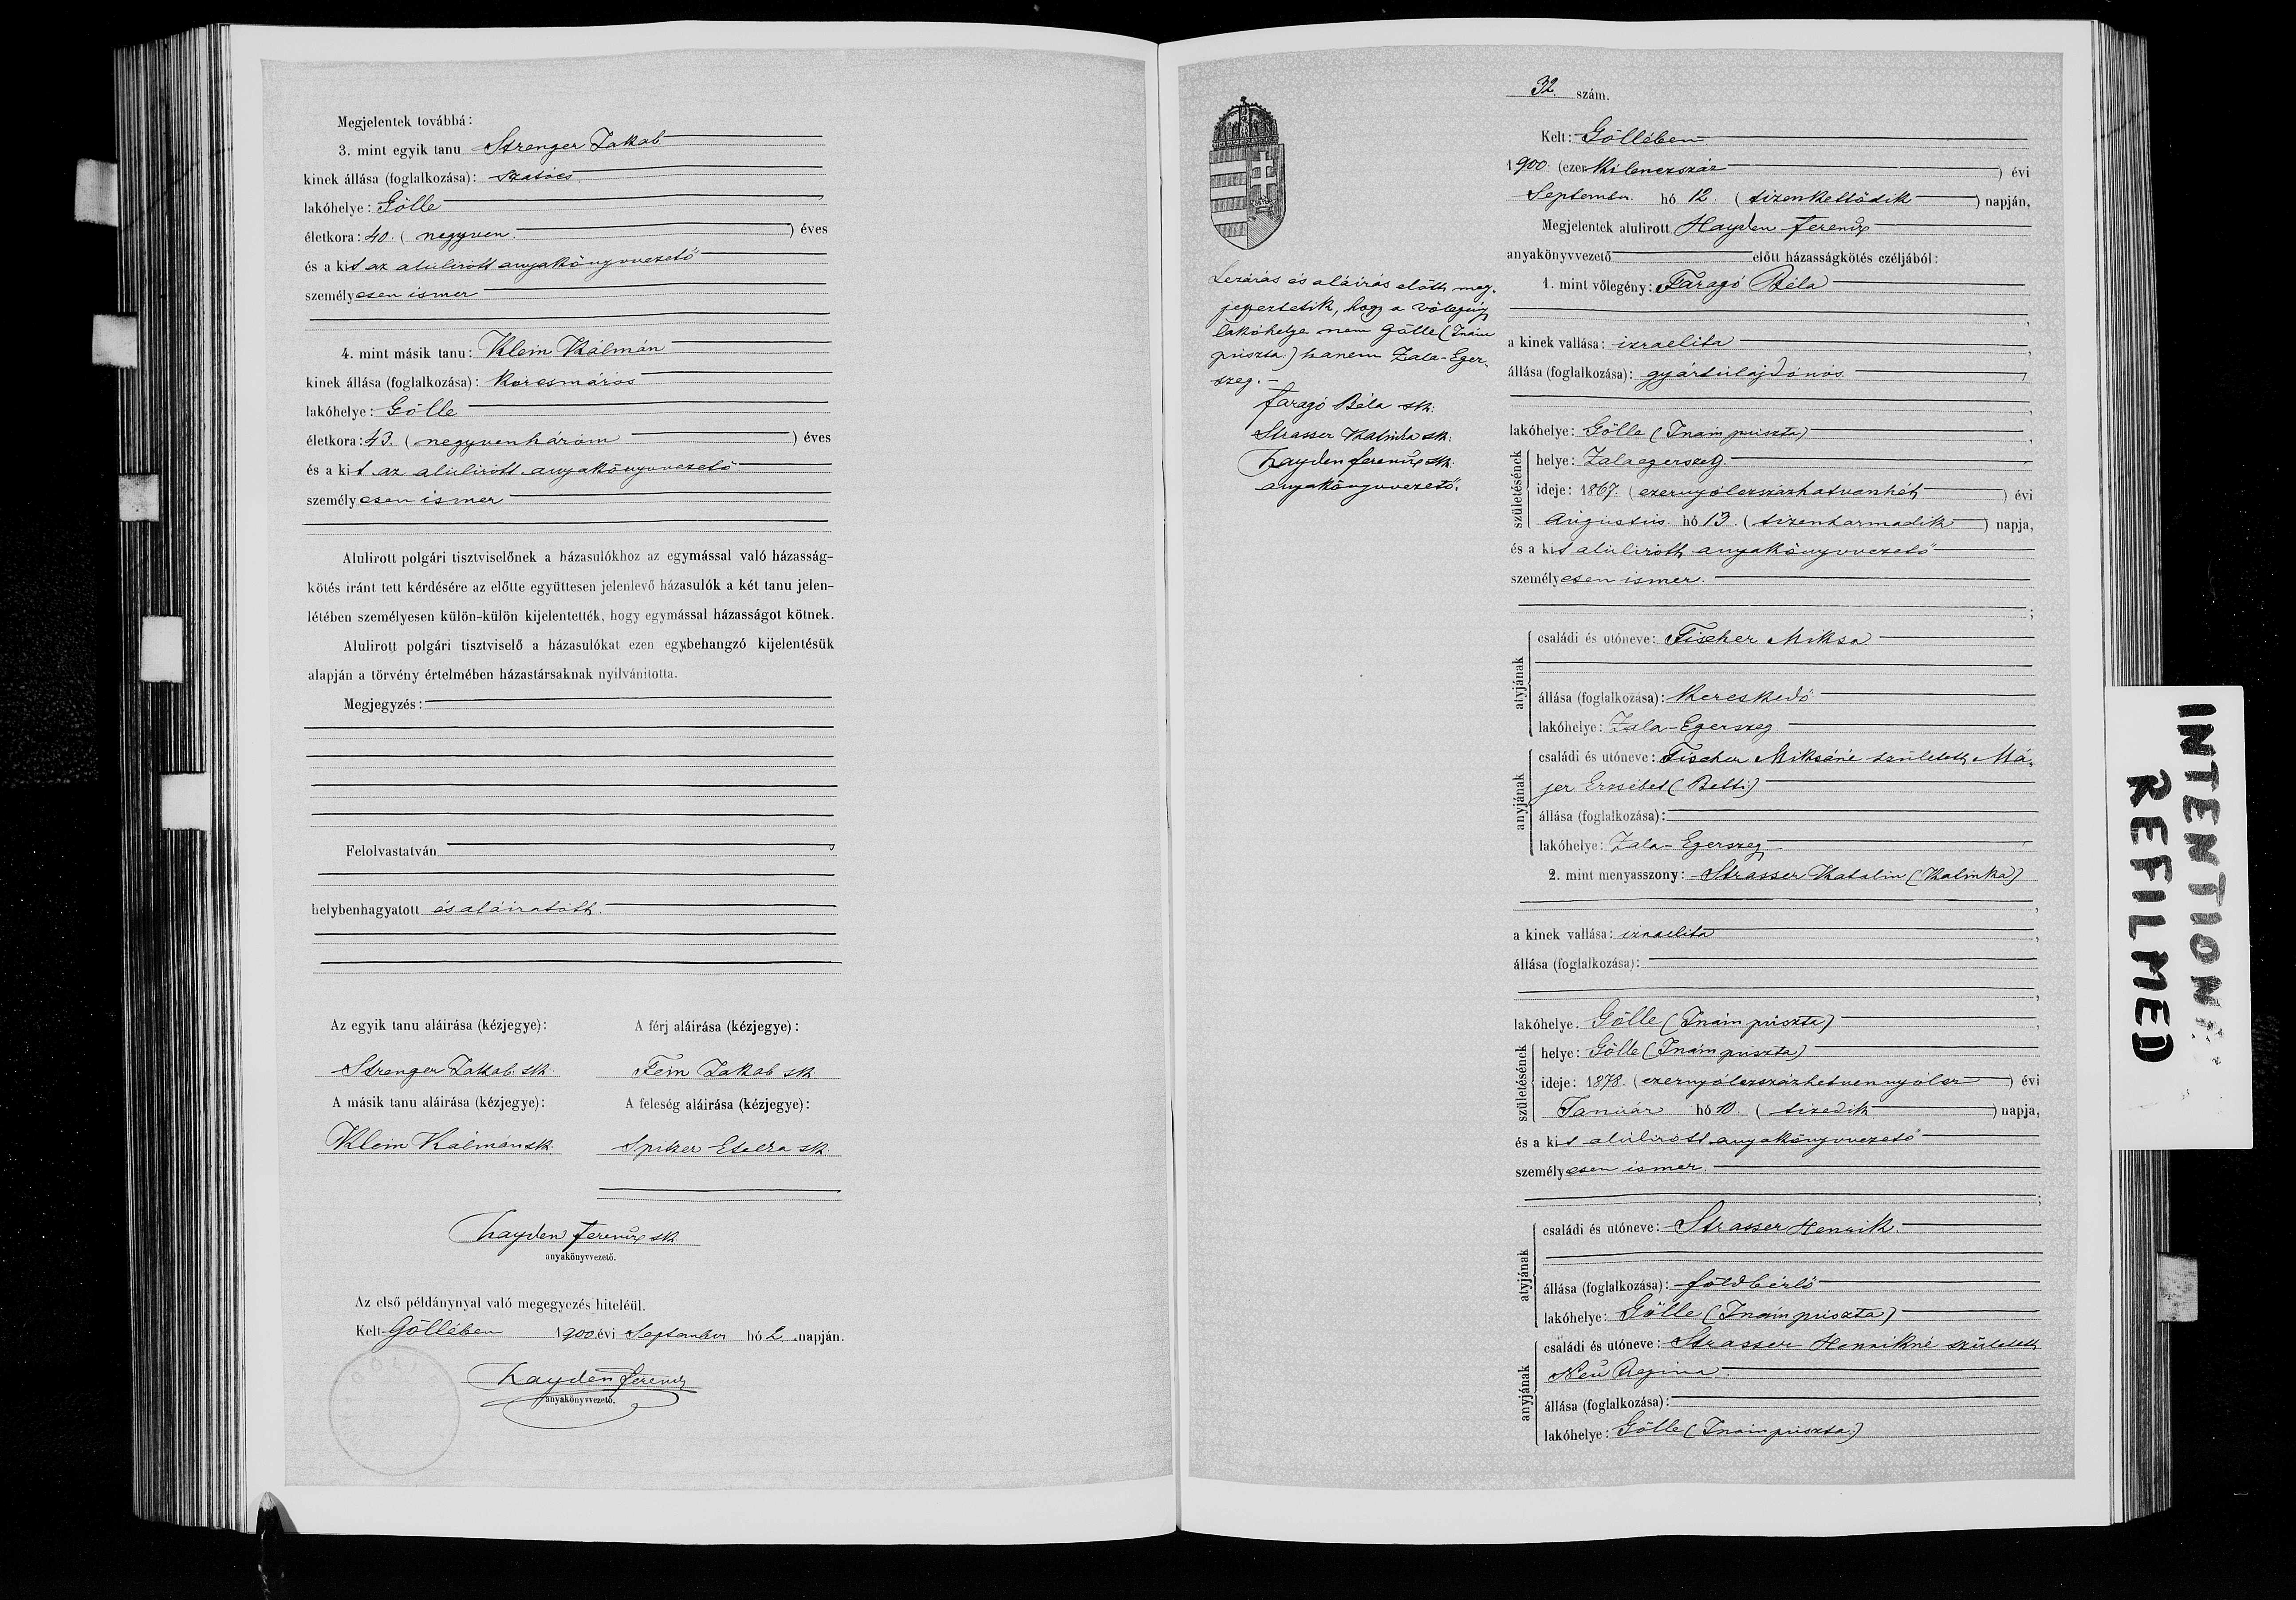 Megjelentek továbbá:
3. mint egyik tanu Strenger Jakab
kinek állása (foglalkozása): szatócs
lakóhelye: Gölle
életkora: 40. ( negyven. ) éves
és a kit az alulirott anyakönyvvezető
személyesen ismer
4. mint másik tanu: Klein Kálmán
kinek állása (foglalkozása): korcsmáros
lakóhelye: Gölle
életkora: 43. ( negyvenhárom ) éves
és a kit az alulirott anyakönyvvezető
személyesen ismer
Alulirott polgári tisztviselőnek a házasulókhoz az egymással való házasság-
kötés iránt tett kérdésére az előtte együttesen jelenlevő házasulók a két tanu jelen-
létében személyesen külön-külön kijelentették, hogy egymással házasságot kötnek.
Alulirott polgári tisztviselő a házasulókat ezen egybehangzó kijelentésük
alapján a törvény értelmében házastársaknak nyilvánitotta.
Megjegyzés:
Felolvastatván
helybenhagyatott és aláiratott.
Az egyik tanu aláirása (kézjegye): A férj aláirása (kézjegye):
Strenger Jakab sk. Fein Jakab sk.
A másik tanu aláirása (kézjegye): A feleség aláirása (kézjegye):
Klein Kálmán sk. Spitzer Etelka sk.
Hayden Ferencz sk.
anyakönyvvezető.
Az első példánynyal való megegyezés hiteléül.
Kelt Göllében 1900. évi September hó 2. napján.
Hayden Ferencz
anyakönyvvezető.
32. szám.
Kelt: Göllében
1900. (ezerkilenczszáz ) évi
September. hó 12. ( tizenkettődik ) napján,
Megjelentek alulirott Hayden Ferencz
anyakönyvvezető előtt házasságkötés czéljából:
1. mint vőlegény: Faragó Béla
a kinek vallása: izraelita
állása (foglalkozása): gyártulajdonos.
lakóhelye: Gölle (Inám puszta)
születésének helye: Zalaegerszeg.
ideje: 1867. ( ezernyolczszázhatvanhét ) évi
Augustus. hó 13. ( tizenharmadik ) napja,
és a kit alulirott anyakönyvvezető
személyesen ismer.
atyjának családi és utóneve: Fischer Miksa
állása (foglalkozása): kereskedő
lakóhelye: Zala-Egerszeg
anyjának családi és utóneve: Fischer Miksáné született Má-
jer Erzsébet (Betti)
állása (foglalkozása):
lakóhelye: Zala-Egerszeg
2. mint menyasszony: Strasser Katalin (Katinka)
a kinek vallása: izraelita
állása (foglalkozása):
lakóhelye. Gölle (Inám puszta)
születésének helye: Gölle (Inám puszta)
ideje: 1878. ( ezernyolczszázhetvennyolcz ) évi
Január hó 10. ( tizedik ) napja,
és a kit alulirott anyakönyvvezető
személyesen ismer.
atyjának családi és utóneve: Strasser Henrik.
állása (foglalkozása): földbérlő
lakóhelye: Gölle (Inám puszta)
anyjának családi és utóneve: Strasser Henrikné született
Neu Regina.
állása (foglalkozása):
lakóhelye: Gölle (Inám puszta)
Lezárás és aláirás előtt meg-
jegyeztetik, hogy a vőlegény
lakóhelye nem Gölle (Inám
puszta) hanem Zala-Eger-
szeg.-
Faragó Béla sk:
Strasser Katinka sk:
Hayden Ferencz sk:
anyakönyvvezető.
INTENTION
REFILMED